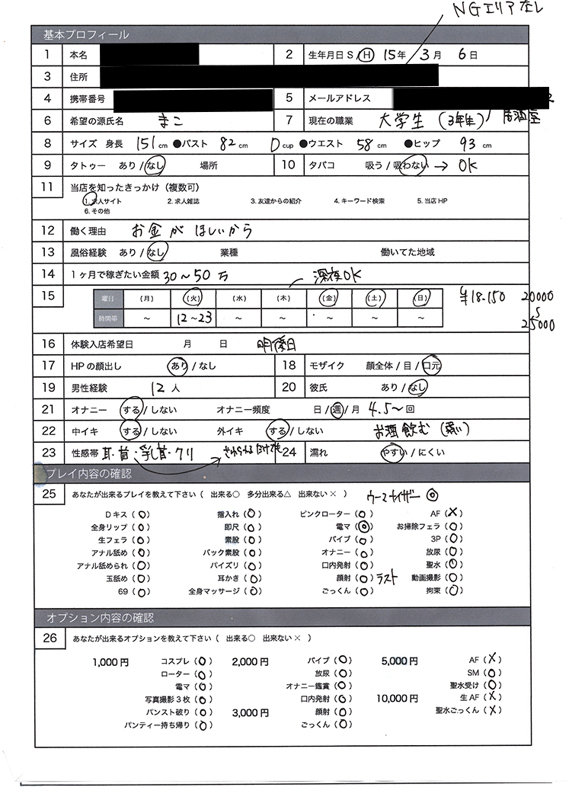 NGエリアなし
基本プロフィール
1 本名 2 生年月日 S / H 15年 3月 6日
3 住所
4 携帯番号 5 メールアドレス
6 希望の源氏名 まこ 7 現在の職業 大学生 (3年生) 居酒屋
8 サイズ 身長 151cm ●バスト 82cm Dcup ●ウエスト 58cm ●ヒップ 93cm
9 タトゥー あり/なし 場所 10 タバコ 吸う/吸わない → OK
11 当店を知ったきっかけ(複数可)
1.求人サイト 2.求人雑誌 3.友達からの紹介 4.キーワード検索 5.当店HP
6.その他
12 働く理由 お金がほしいから
13 風俗経験 あり/なし 業種 働いてた地域
14 1ヶ月で稼ぎたい金額 30〜50万 深夜OK
15 曜日 (月) (火) (水) (木) (金) (土) (日) ¥18.150 20000
時間帯 〜 12〜23 〜 〜 〜 〜 〜 25000
16 体験入店希望日 月 日
17 HPの顔出し あり/なし 18 モザイク 顔全体/目/口元
19 男性経験 12人 20 彼氏 あり/なし
21 オナニー する/しない オナニー頻度 日/週/月 4.5〜回
22 中イキ する/しない 外イキ する/しない お酒飲む (弱い)
23 性感帯 耳・首・乳首・クリ 24 濡れ やすい/にくい
プレイ内容の確認
25 あなたが出来るプレイを教えて下さい ( 出来る○ 多分出来る△ 出来ない× ) ウーマナイザー ◎
Dキス(○) 指入れ(○) ピンクローター(○) AF(×)
全身リップ(○) 即尺(○) 電マ(◎) お掃除フェラ(○)
生フェラ(○) 素股(○) バイブ(○) 3P(○)
アナル舐め(○) バック素股(○) オナニー(○) 放尿(○)
アナル舐められ(○) パイズリ(○) 口内発射(○) 聖水(○)
玉舐め(○) 耳かき(○) 顔射(○) ラスト 動画撮影(○)
69(○) 全身マッサージ(○) ごっくん(○) 拘束(○)
オプション内容の確認
26 あなたが出来るオプションを教えて下さい ( 出来る○ 出来ない× )
1,000円 コスプレ(○) 2,000円 バイブ(○) 5,000円 AF(×)
ローター(○) 放尿(○) SM(○)
電マ(○) オナニー鑑賞(○) 聖水受け(○)
写真撮影3枚(○) 口内発射(○) 10,000円 生AF(×)
パンスト破り(○) 3,000円 顔射(○) 聖水ごっくん(×)
パンティー持ち帰り(○) ごっくん(○)